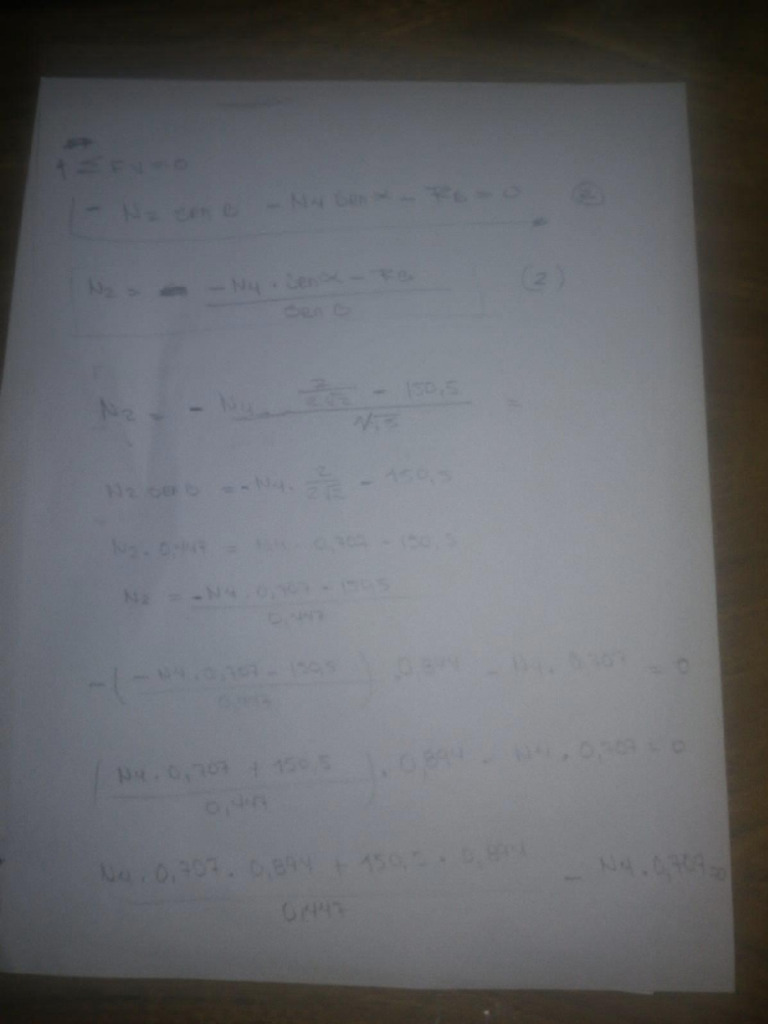 ↑ Σ Fv = 0
- N2 sen θ - N4 sen α - RB = 0
N2 = -N4 . sen α - RB / sen θ (2)
N2 = - N4 2/2√2 - 150,5 / =
N2 . sen θ = -N4 . 2/2√2 - 150,5
N2 . 0,447 = N4 . 0,707 - 150,5
N2 = -N4 . 0,707 - 150,5 / 0,447
-( -N4 . 0,707 - 150,5 / 0,447 ) . 0,894 - N4 . 0,707 = 0
( N4 . 0,707 + 150,5 / 0,447 ) . 0,894 - N4 . 0,707 = 0
N4 . 0,707 . 0,894 + 150,5 . 0,894 / 0,447 - N4 . 0,707 = 0